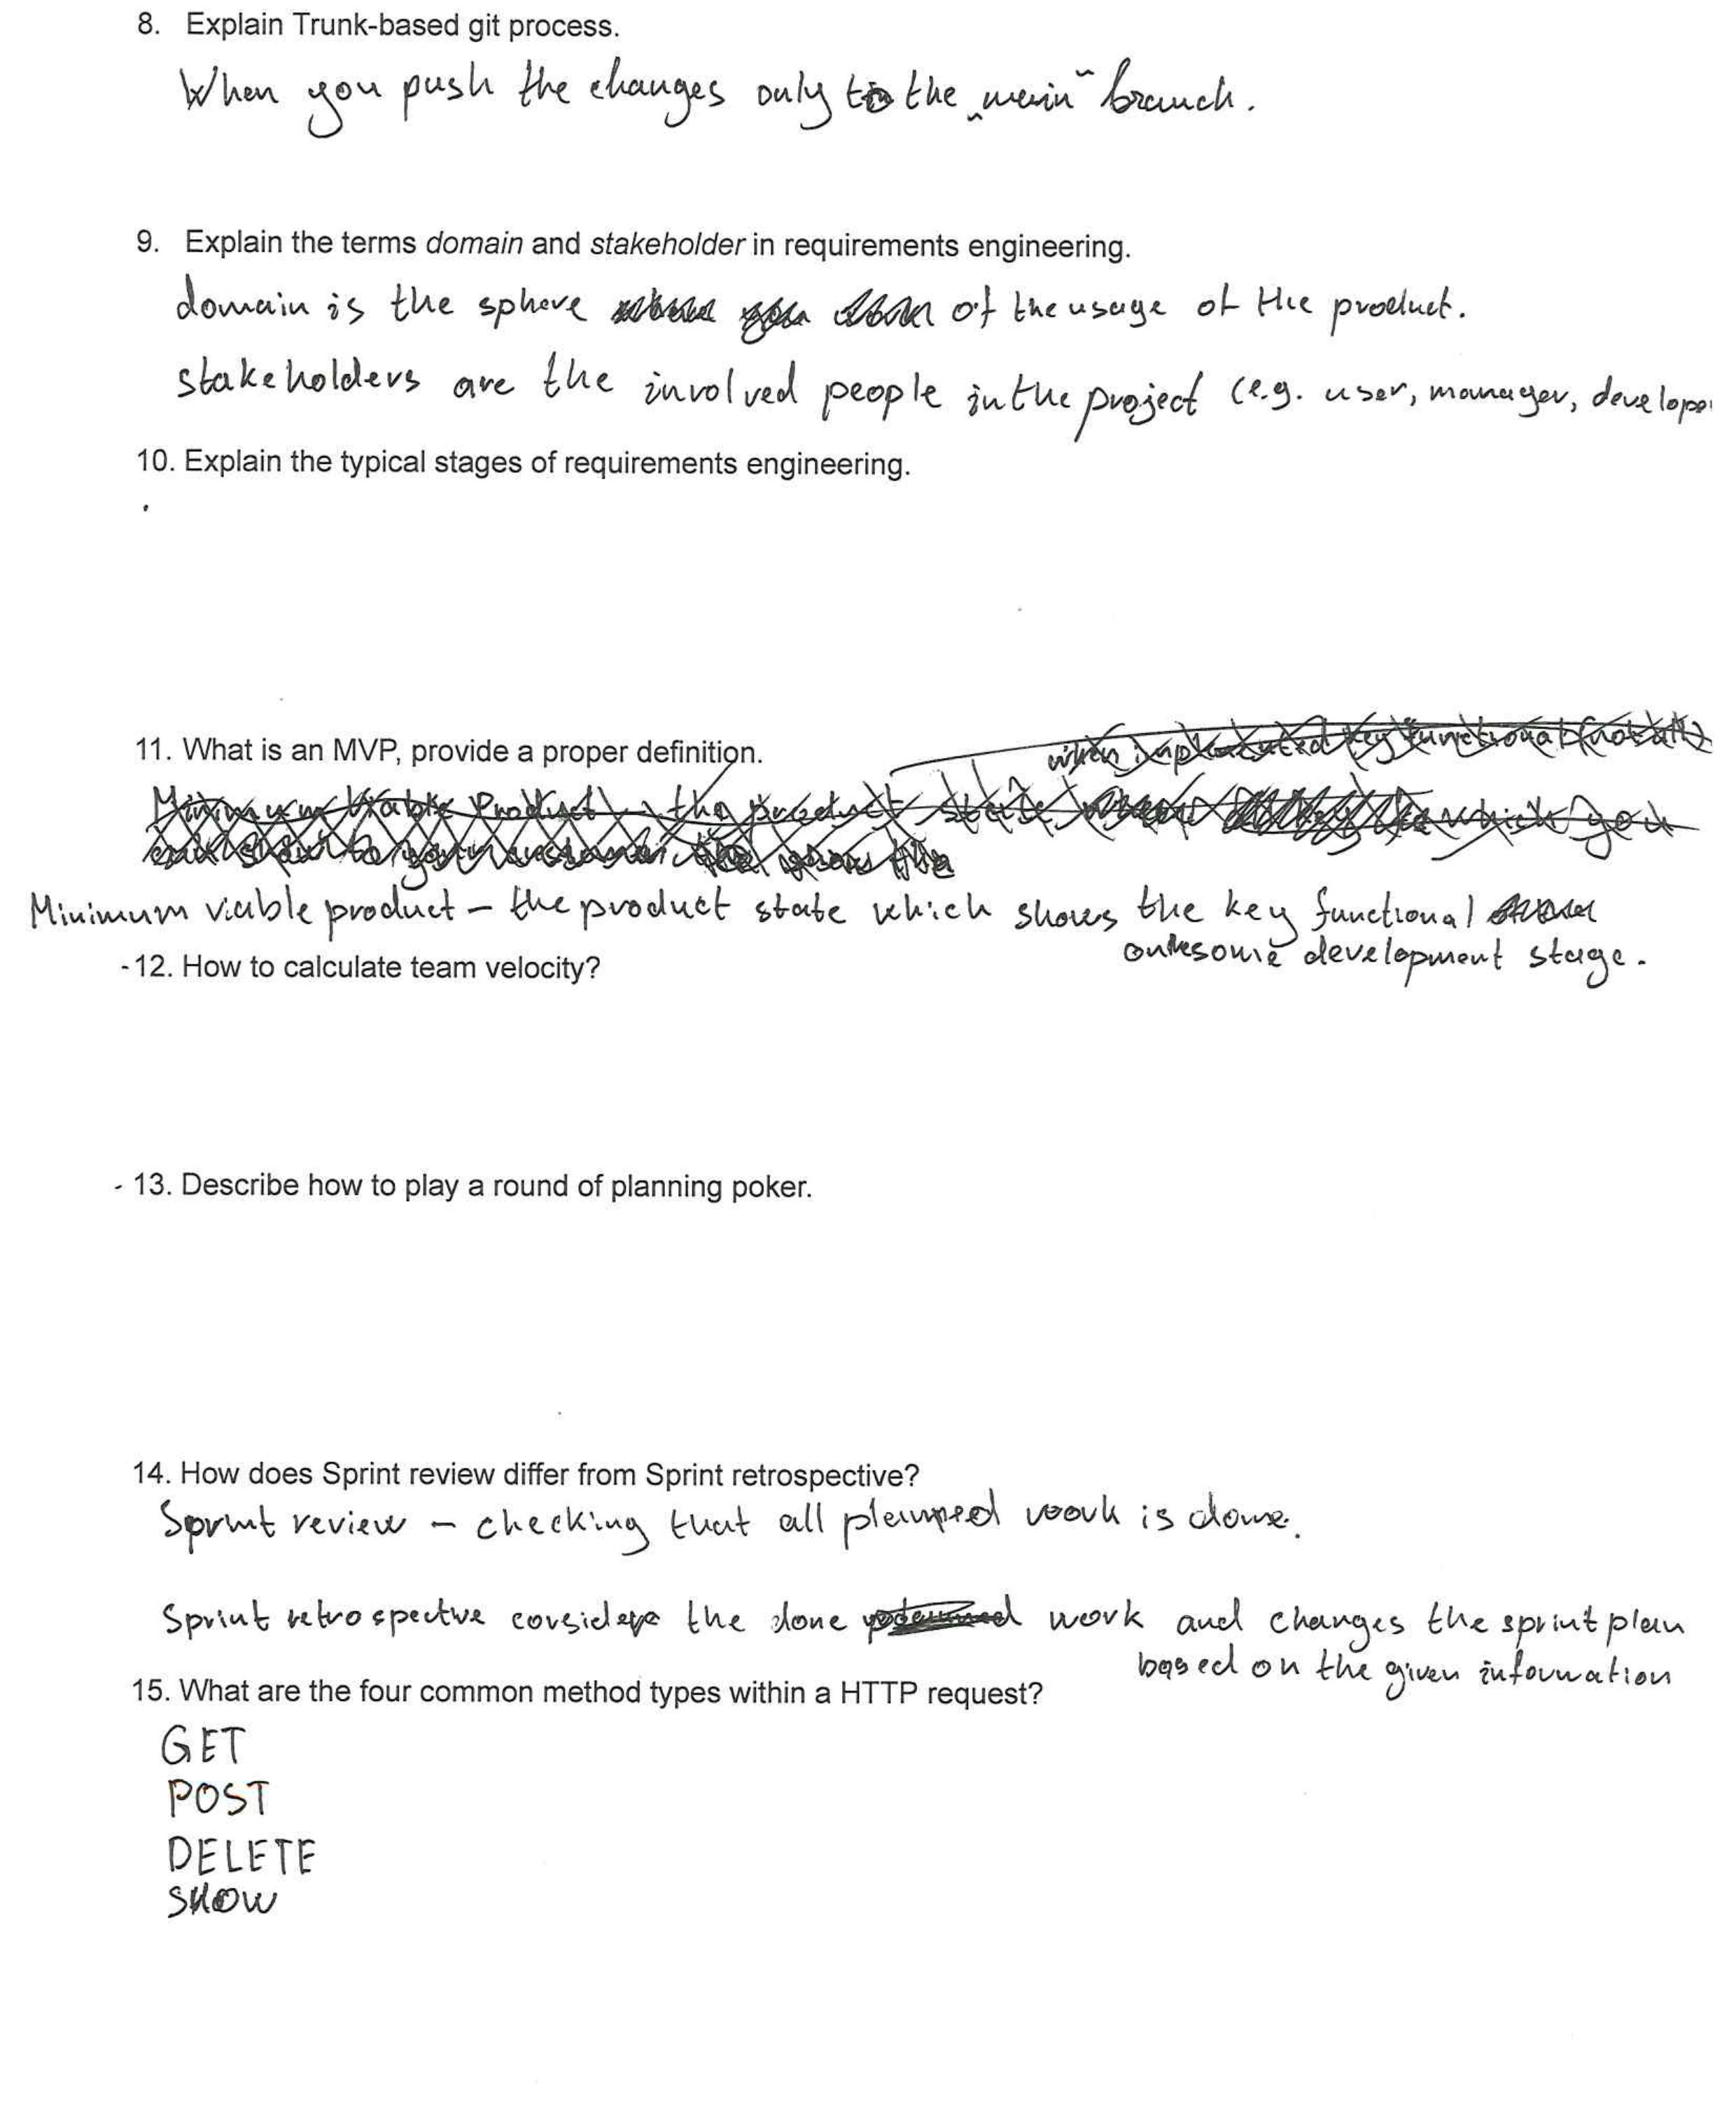 8. Explain Trunk-based git process.
When you push the changes only to the "main" branch.
9. Explain the terms domain and stakeholder in requirements engineering.
domain is the sphere of the usage of the product.
stakeholders are the involved people in the project (e.g. user, manager, develope
10. Explain the typical stages of requirements engineering.
when implemented key functional (not all)
11. What is an MVP, provide a proper definition.
Minimum Viable Product - the product state which you
can show to your customer
Minimum viable product - the product state which shows the key functional
some development stage.
-12. How to calculate team velocity?
- 13. Describe how to play a round of planning poker.
14. How does Sprint review differ from Sprint retrospective?
Sprint review - checking that all planned work is done.
Sprint retrospective considers the done work and changes the sprint plan
based on the given information
15. What are the four common method types within a HTTP request?
GET
POST
DELETE
SHOW